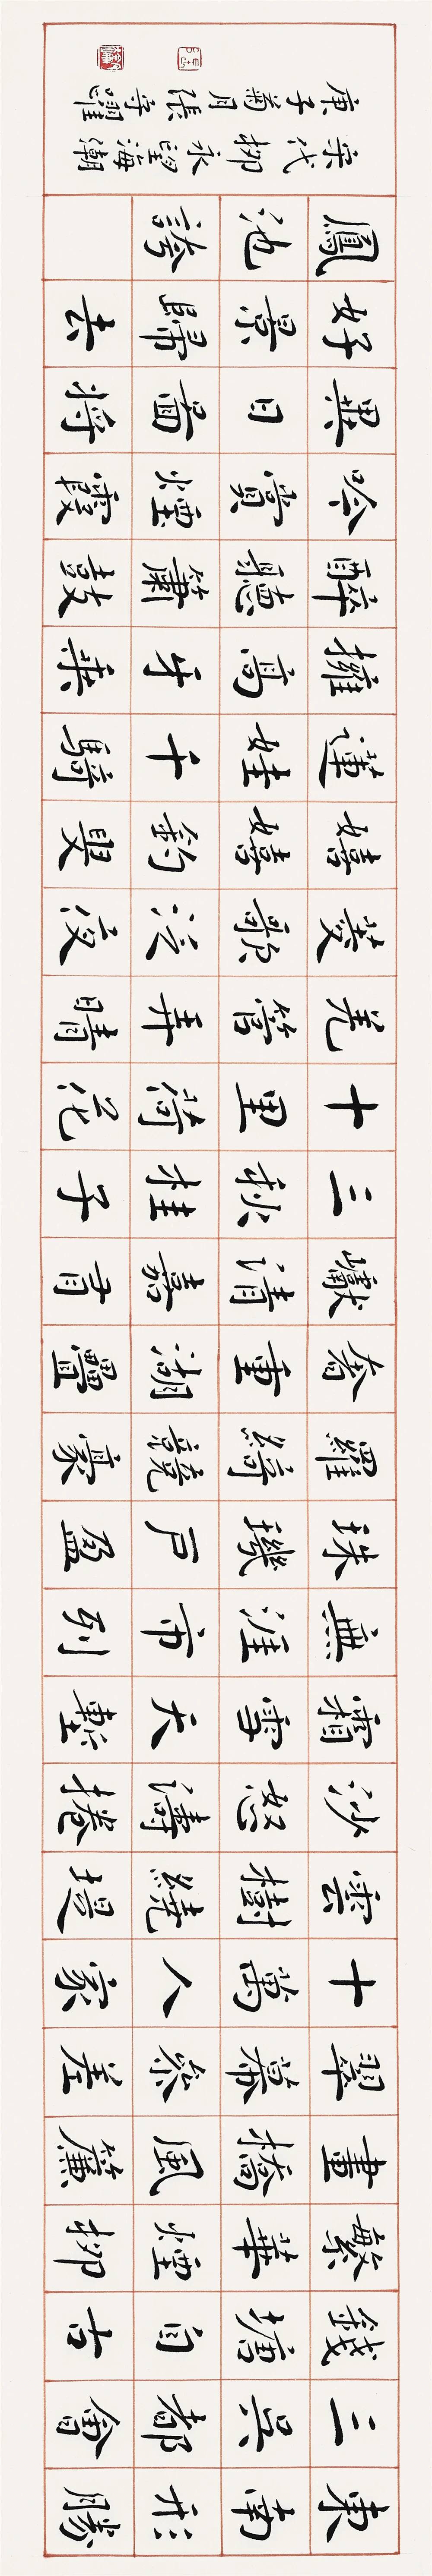 東南形勝
三吳都會
錢塘自古
繁華煙柳
畫橋風簾
翠幕參差
十萬人家
雲樹繞堤
沙怒濤捲
霜雪天塹
無涯市列
珠璣戶盈
羅綺競豪
奢重湖疊
巘清嘉有
三秋桂子
十里荷花
羌管弄晴
菱歌泛夜
嬉嬉釣叟
蓮娃千騎
擁高牙乘
醉聽簫鼓
吟賞煙霞
異日圖將
好景歸去
鳳池誇
宋代柳永望海潮
庚子菊月張守